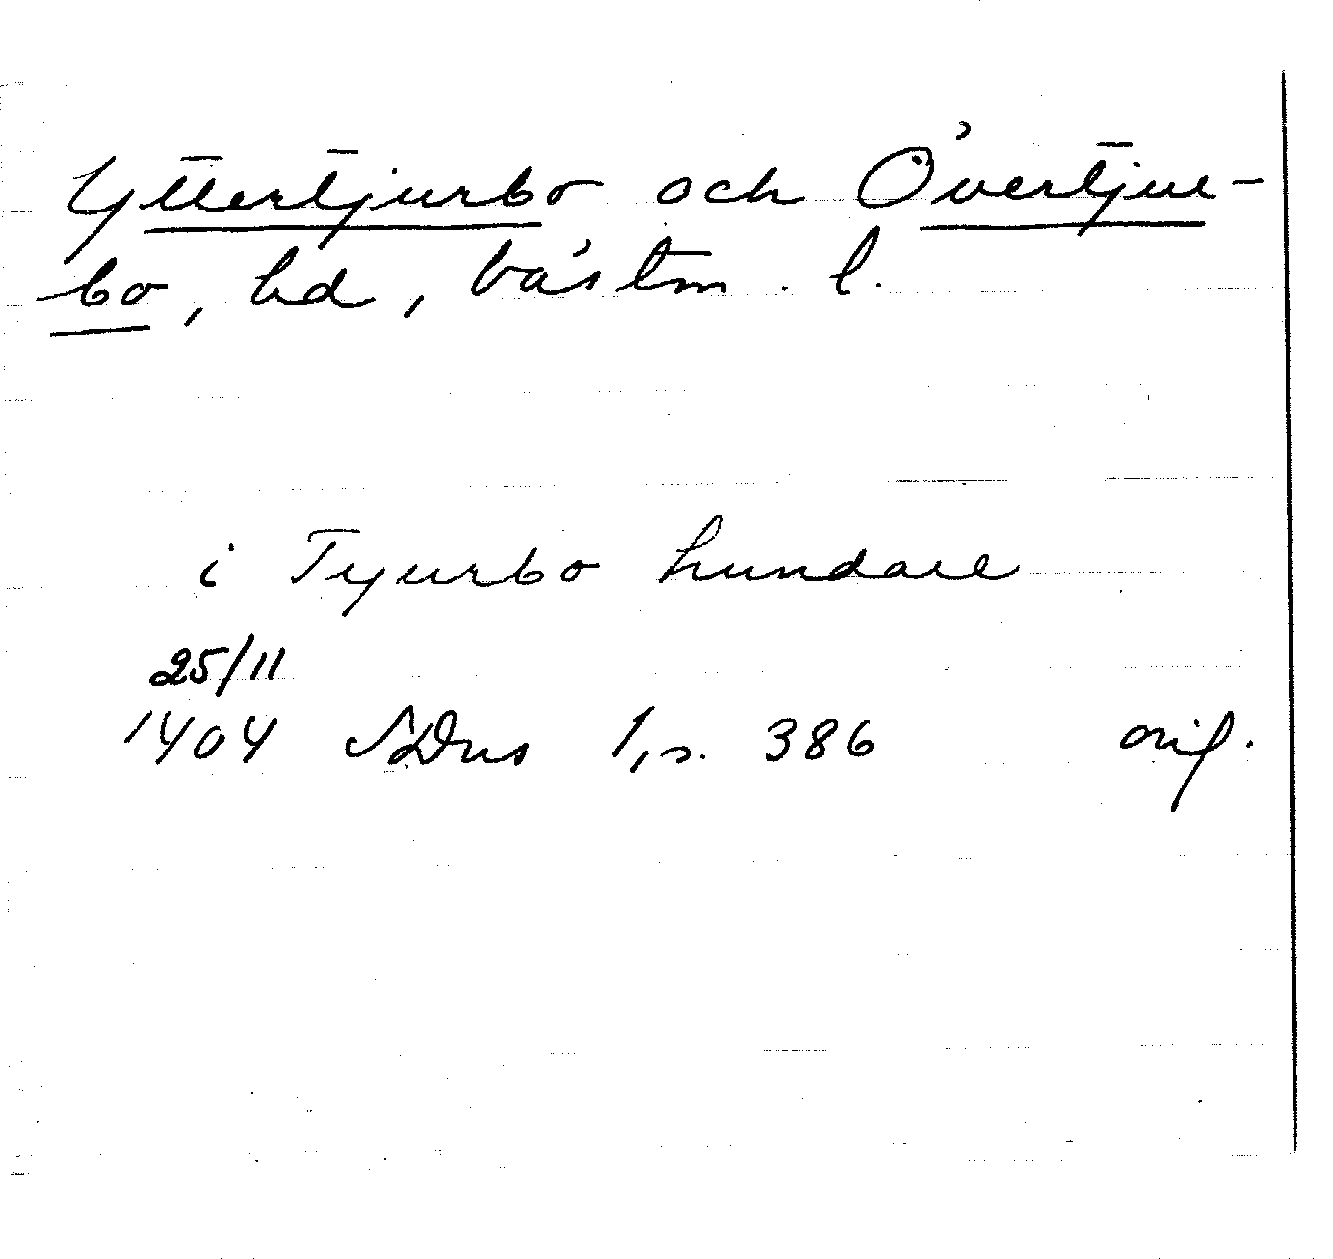 Yttertjurbo och Övertjur-
bo, hd, Västm. l.
i Tyurbo hundare
25/11
1404 SDns 1, s. 386 orig.